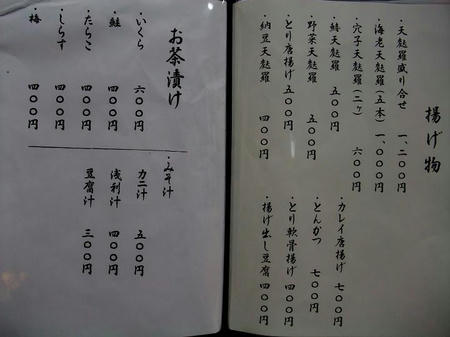 揚げ物
・天麩羅盛り合せ 一、二〇〇円
・海老天麩羅(五本) 一、〇〇〇円
・穴子天麩羅(二ヶ) 六〇〇円
・鮭天麩羅 五〇〇円
・野菜天麩羅 五〇〇円
・とり唐揚げ 五〇〇円
・納豆天麩羅 四〇〇円
・カレイ唐揚げ 七〇〇円
・とんかつ 七〇〇円
・とり軟骨揚げ 四〇〇円
・揚げ出し豆腐 四〇〇円
お茶漬け
・いくら 六〇〇円
・鮭 四〇〇円
・たらこ 四〇〇円
・しらす 四〇〇円
・梅 四〇〇円
・みそ汁
カニ汁 五〇〇円
浅利汁 四〇〇円
豆腐汁 三〇〇円